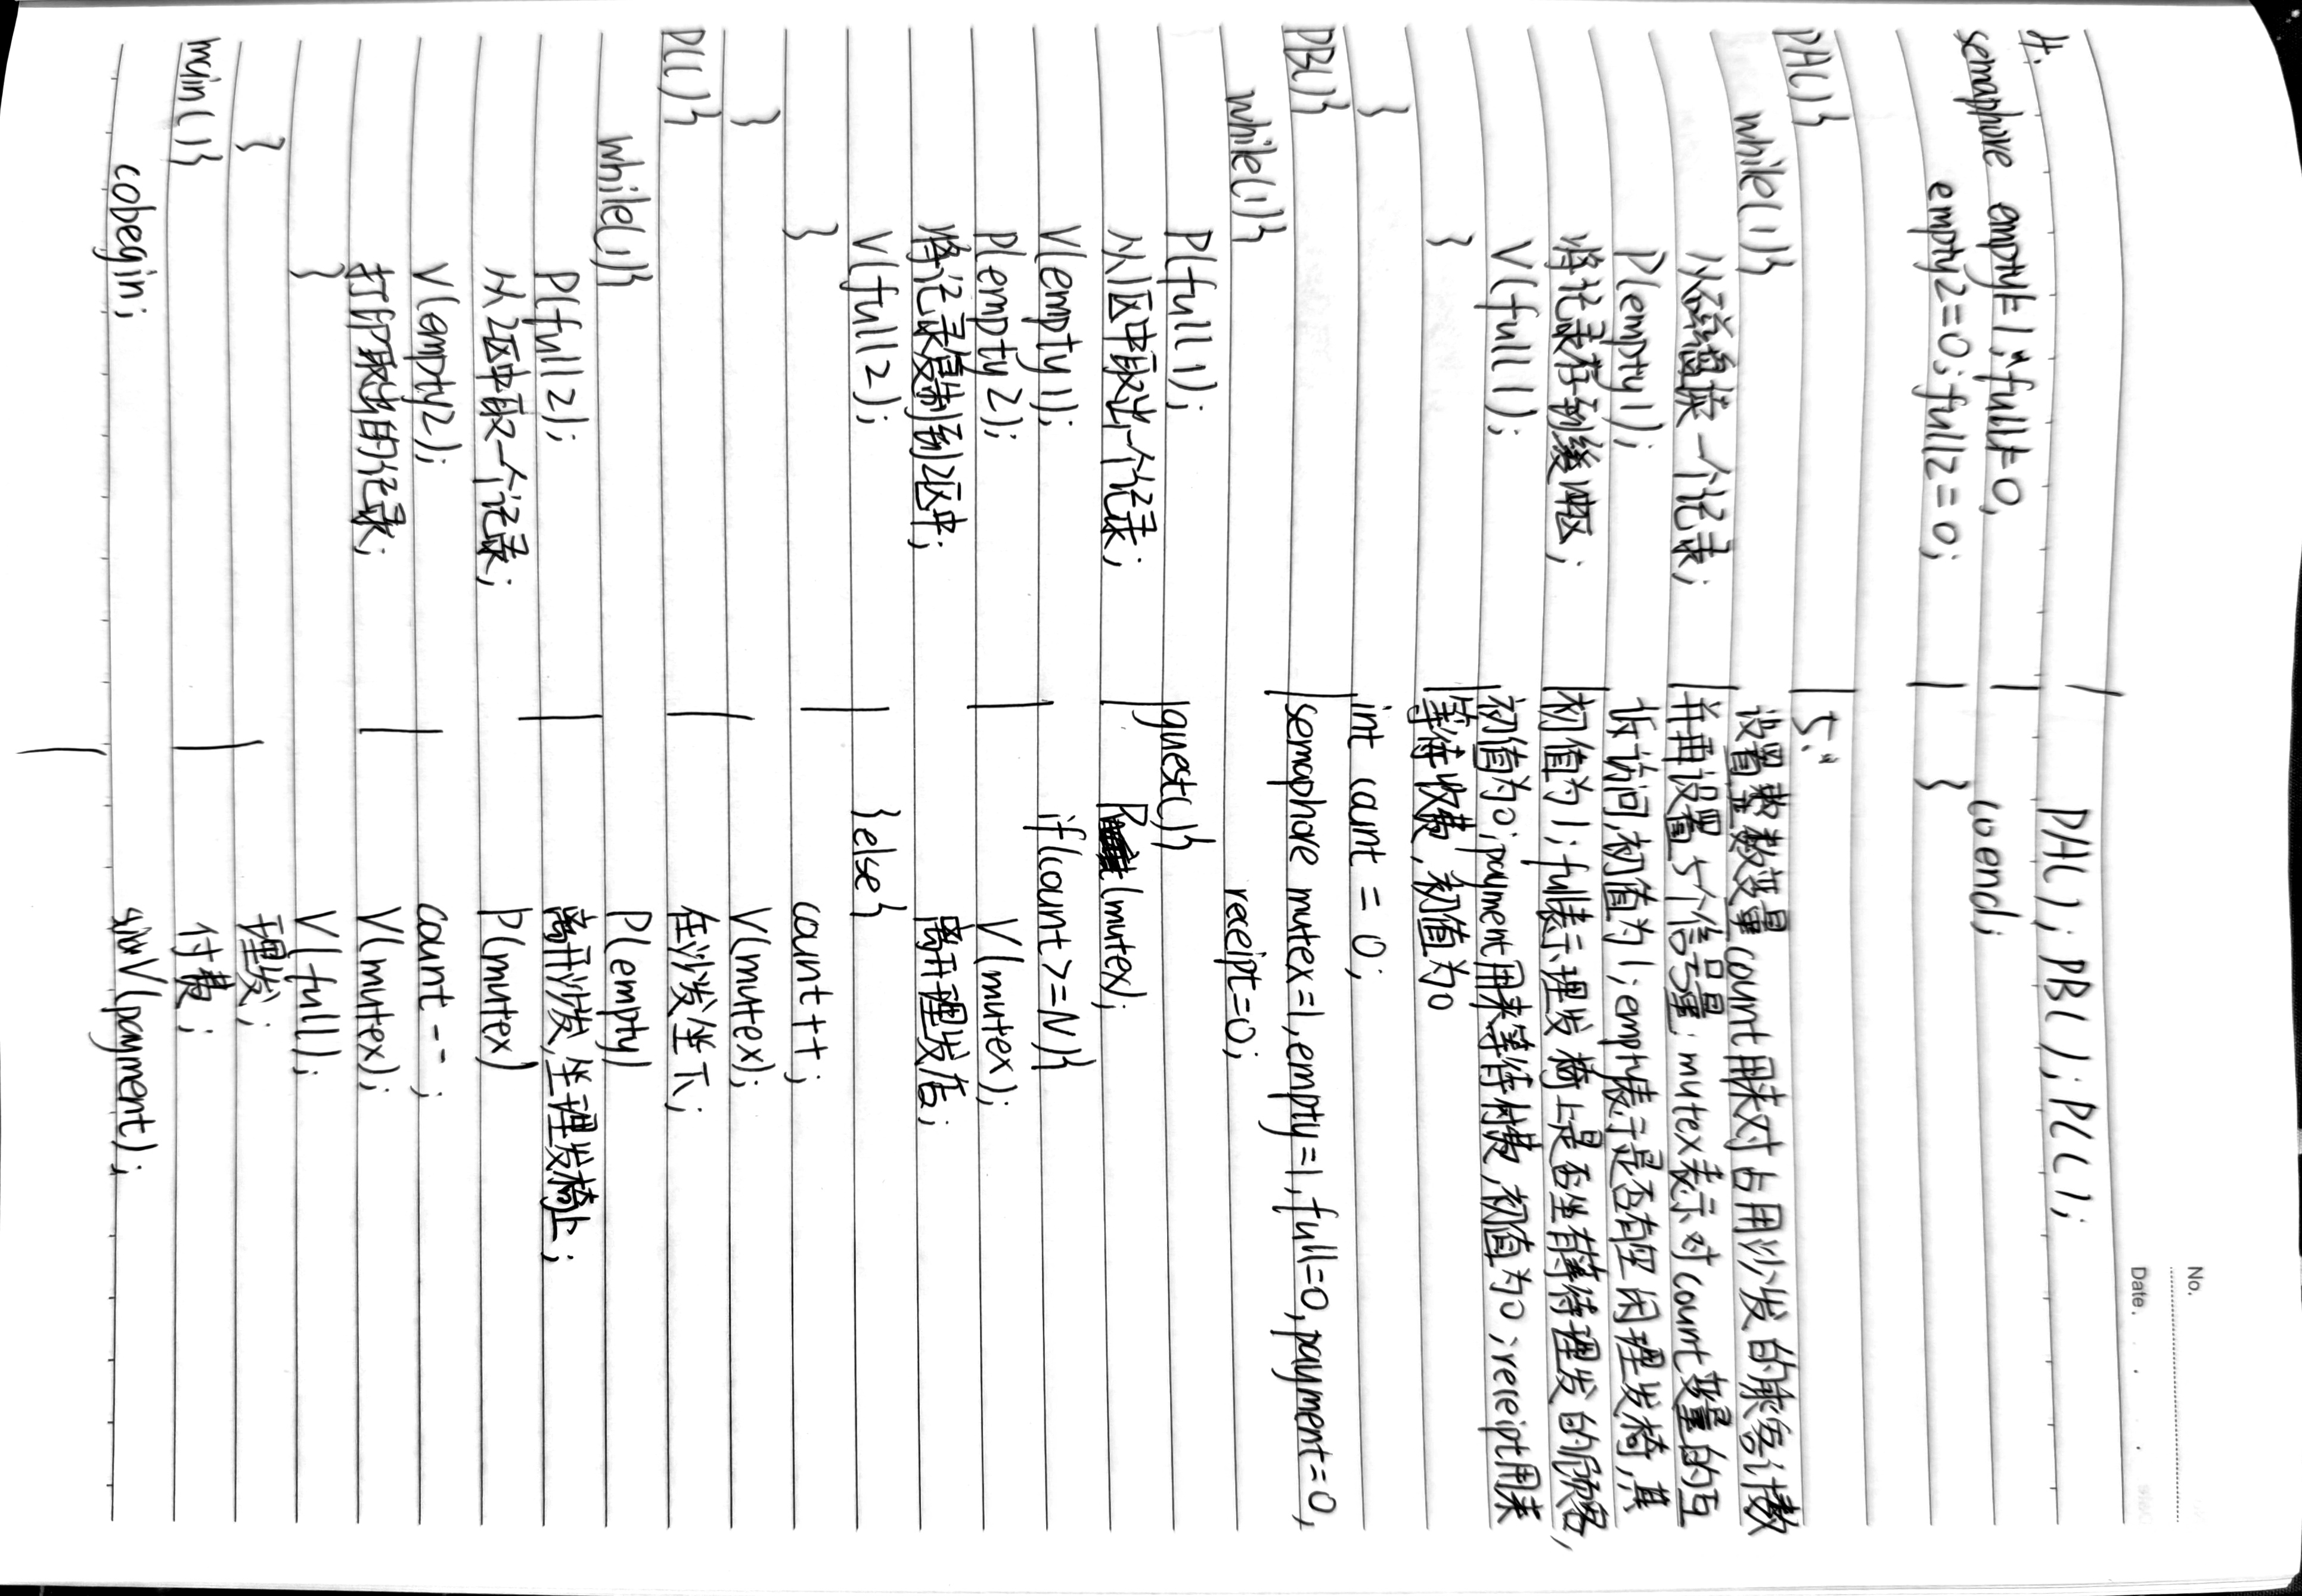 No.
Date.
4.
semaphore empty1=1; full1=0,
empty2=0; full2=0;
PA(){
while(1){
从磁盘读一个记录;
P(empty1);
将记录存到缓冲区;
V(full1);
}
}
PB(){
while(1){
P(full1);
从1区中取出一个记录;
V(empty1);
P(empty2);
将记录复制到2区中;
V(full2);
}
}
PC(){
while(1){
P(full2);
从2区中取一个记录;
V(empty2);
打印取出的记录;
}
}
main(){
cobegin;
PA(); PB(); PC();
coend;
}
5.
设置整数变量count用来对占用沙发的乘客计数
并再设置5个信号量: mutex表示对count变量的互
斥访问,初值为1; empty表示是否有空闲理发椅,其
初值为1; full表示理发椅上是否坐有等待理发的顾客,
初值为0; payment用来等待付费,初值为0; receipt用来
等待收费,初值为0
int count = 0;
semaphore mutex=1, empty=1, full=0, payment=0,
receipt=0;
guest(){
P(mutex);
if(count>=N){
V(mutex);
离开理发店;
}else{
count++;
V(mutex);
在沙发坐下;
P(empty)
离开沙发,坐理发椅上;
P(mutex)
count--;
V(mutex);
V(full);
理发;
付费;
V(payment);